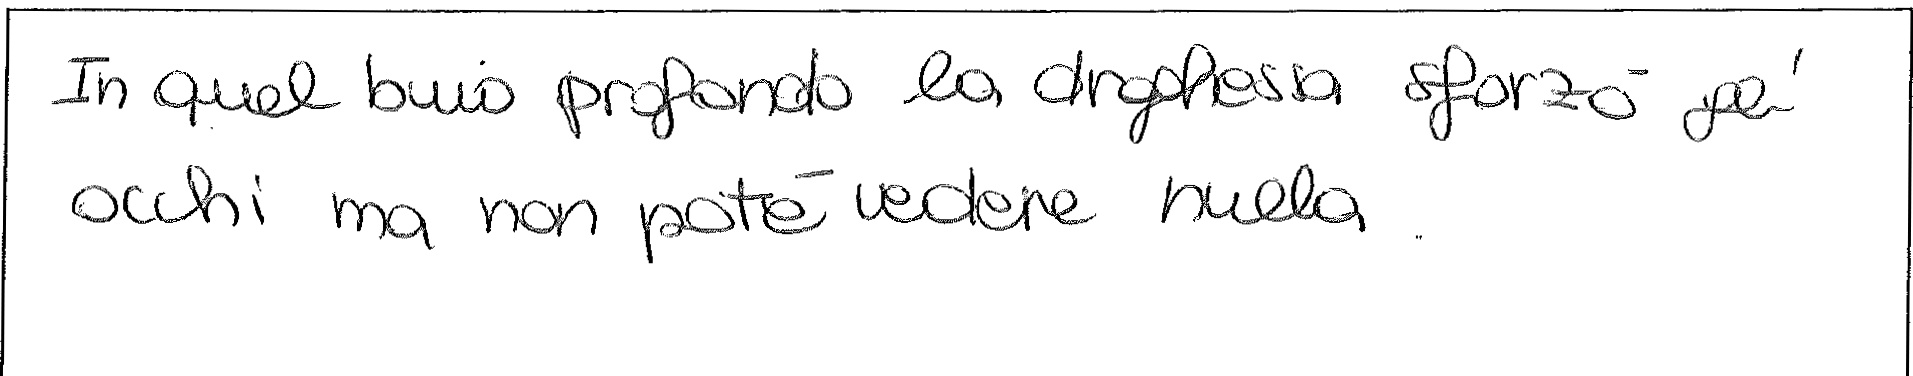 In quel buio profondo la drghessa sforzò gli
occhi ma non poté vedere nulla.